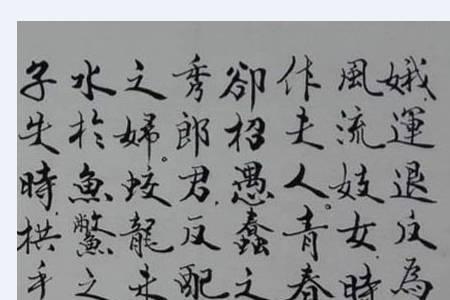 娥運退反為
風流妓女時
作夫人。青春
卻招愚蠢之
秀郎君,反配
之婦。蛟龍未
水於魚鱉之
子失時,拱手